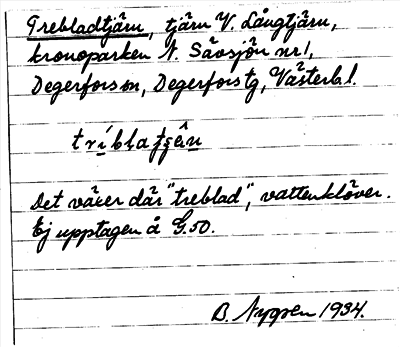 Trebladtjärn, tjärn V. Långtjärn,
kronoparken N. Sävsjön nr 1,
Degerfors sn, Degerfors tg, Västerb l.
tríblatʃɛ̂n
Det växer där "treblad", vattenklöver.
Ej upptagen å G.50.
B. Nygren 1934.